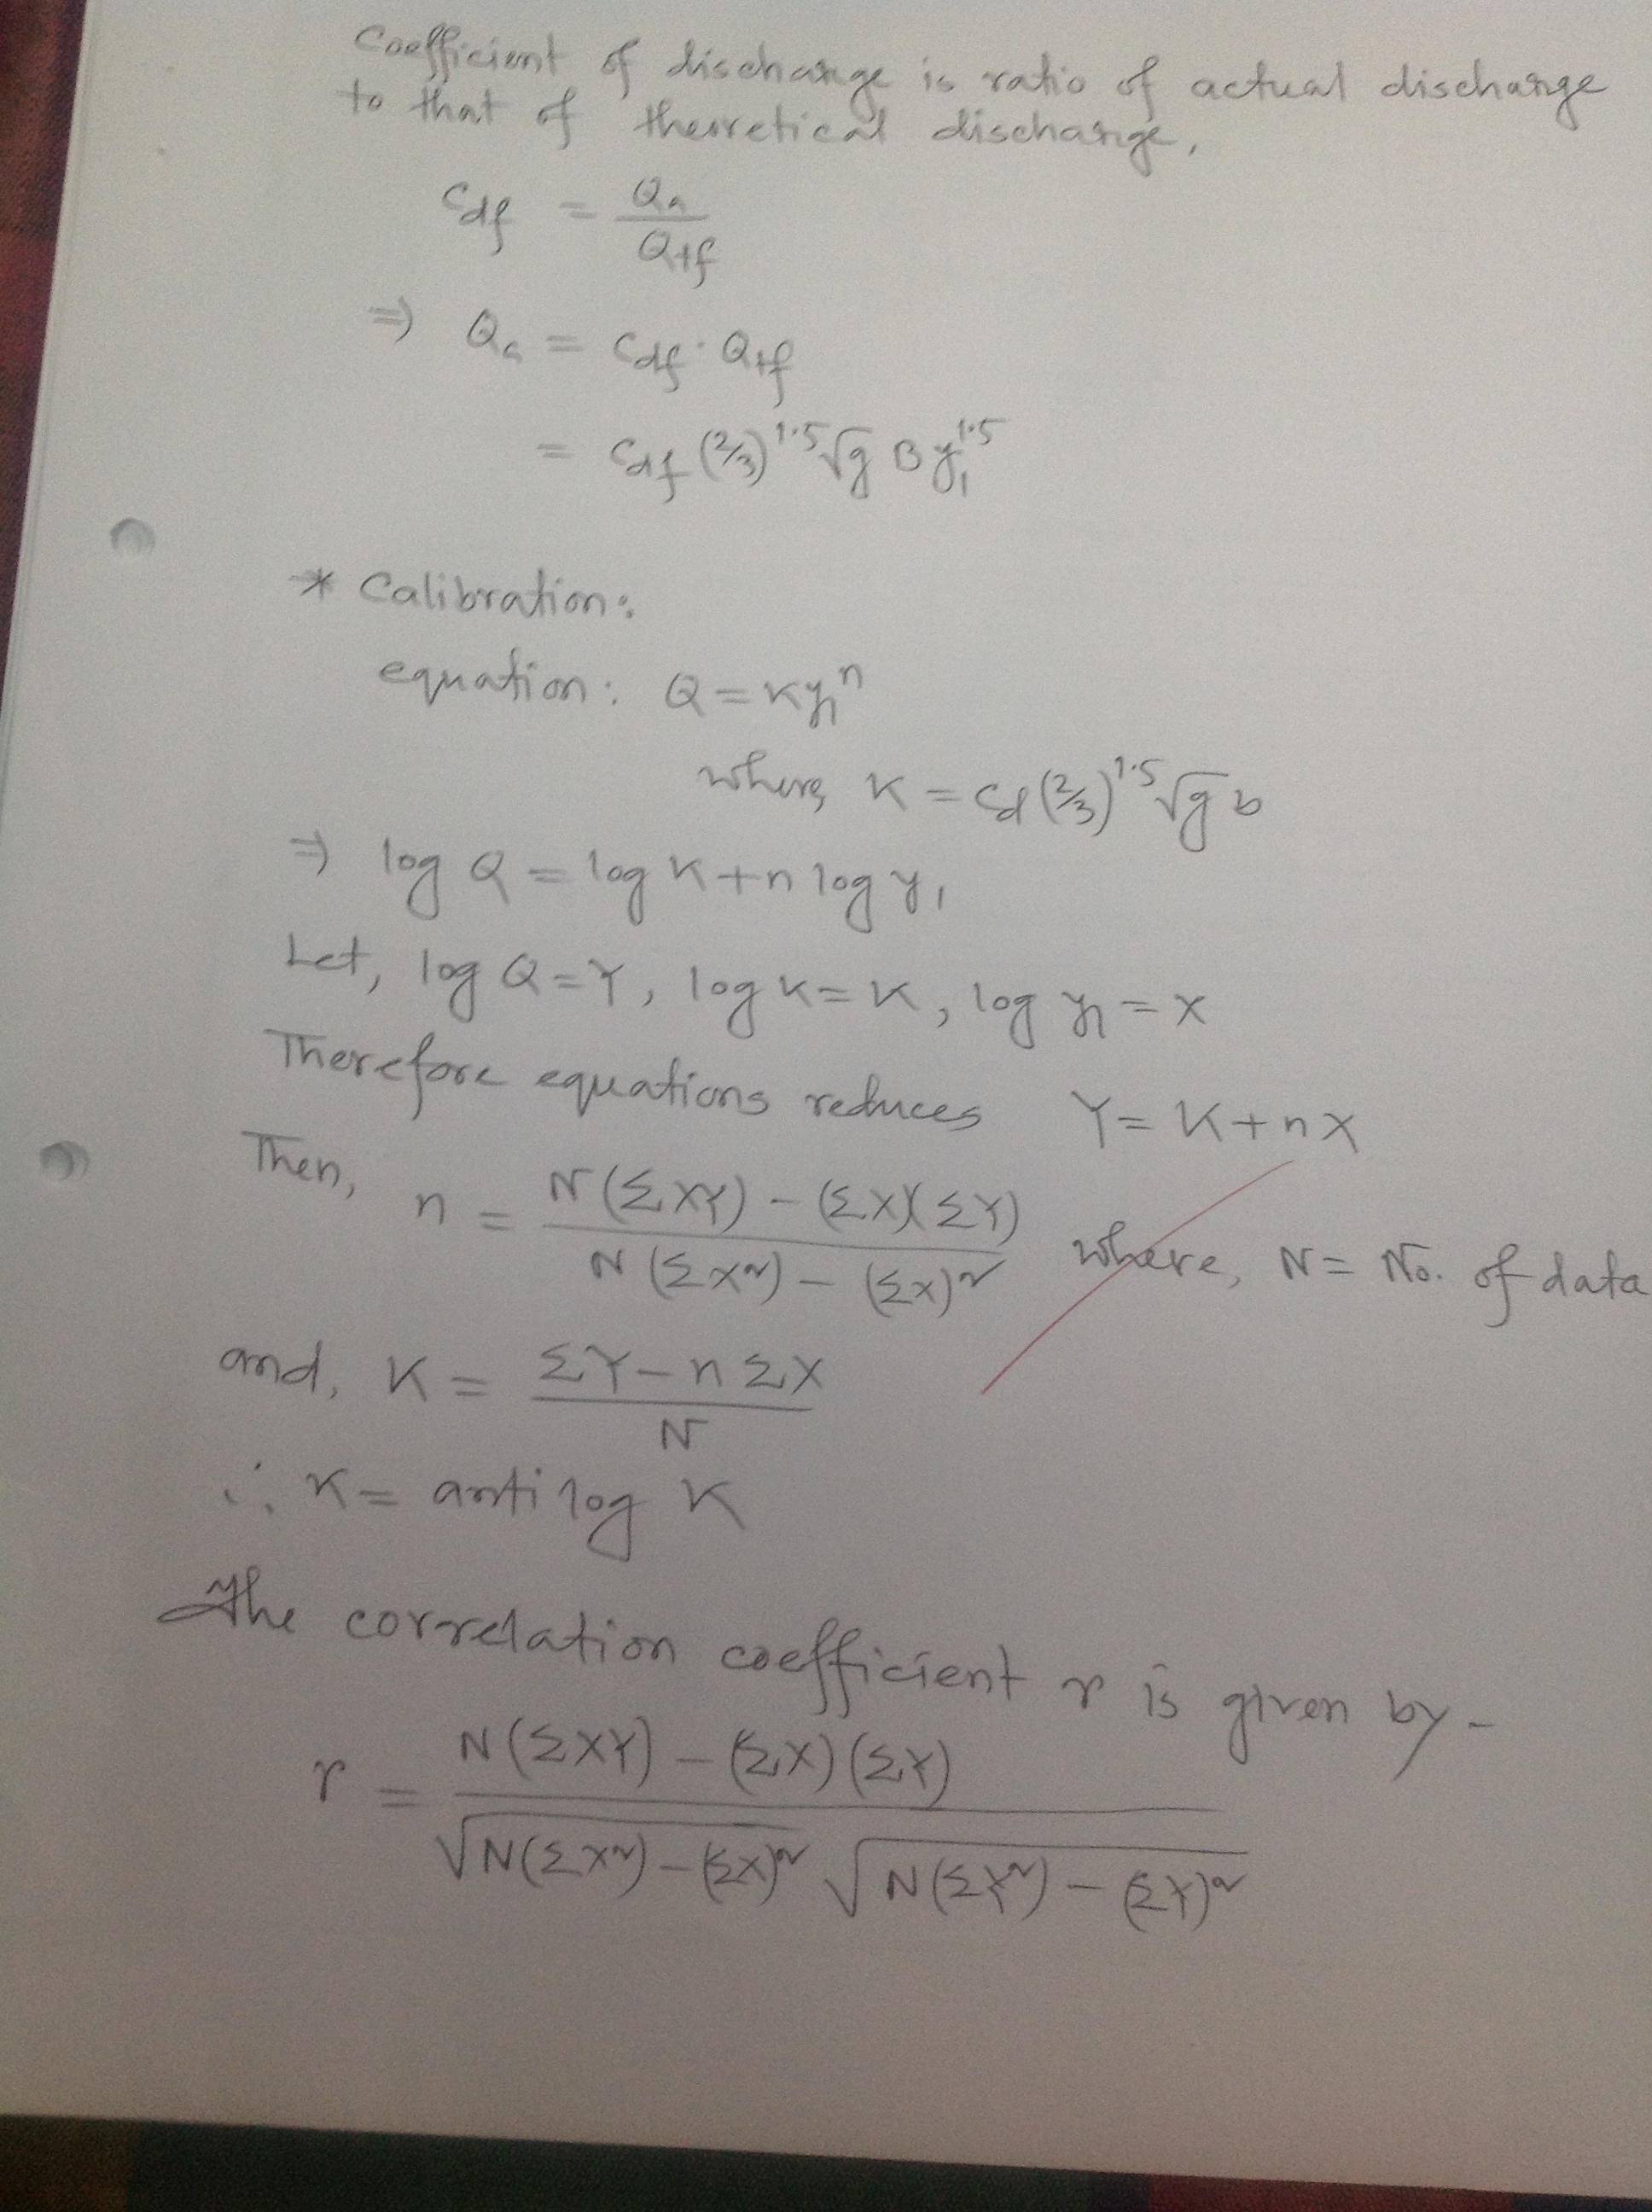 Coefficient of discharge is ratio of actual discharge
to that of theoretical discharge.
Cdf = Qa / Qtf
⇒ Qa = Cdf · Qtf
= Cdf (2/3)^1.5 √g B y₁^1.5
* Calibration:
equation: Q = Ky₁^n
where, K = Cd (2/3)^1.5 √g b
⇒ log Q = log K + n log y₁
Let, log Q = Y, log K = K, log y₁ = X
Therefore equations reduces Y = K + nX
Then, n = (N(ΣXY) - (ΣX)(ΣY)) / (N(ΣX²) - (ΣX)²) where, N = No. of data
and, K = (ΣY - nΣX) / N
∴ K = antilog K
The correlation coefficient r is given by -
r = (N(ΣXY) - (ΣX)(ΣY)) / (√(N(ΣX²) - (ΣX)²) √(N(ΣY²) - (ΣY)²))